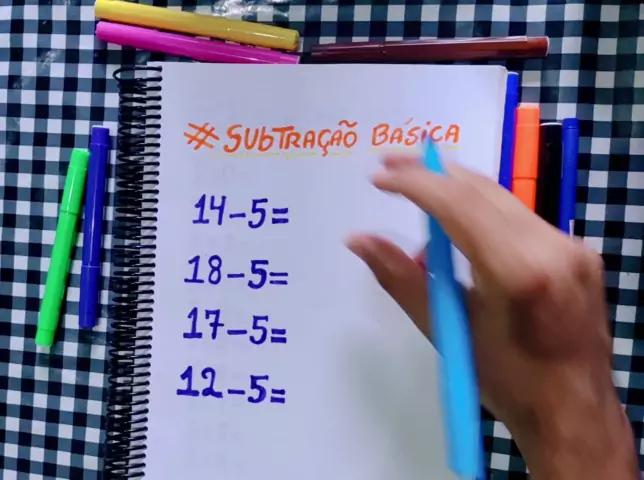 # SUbTRAÇÃO BÁSICA
14-5=
18-5=
17-5=
12-5=